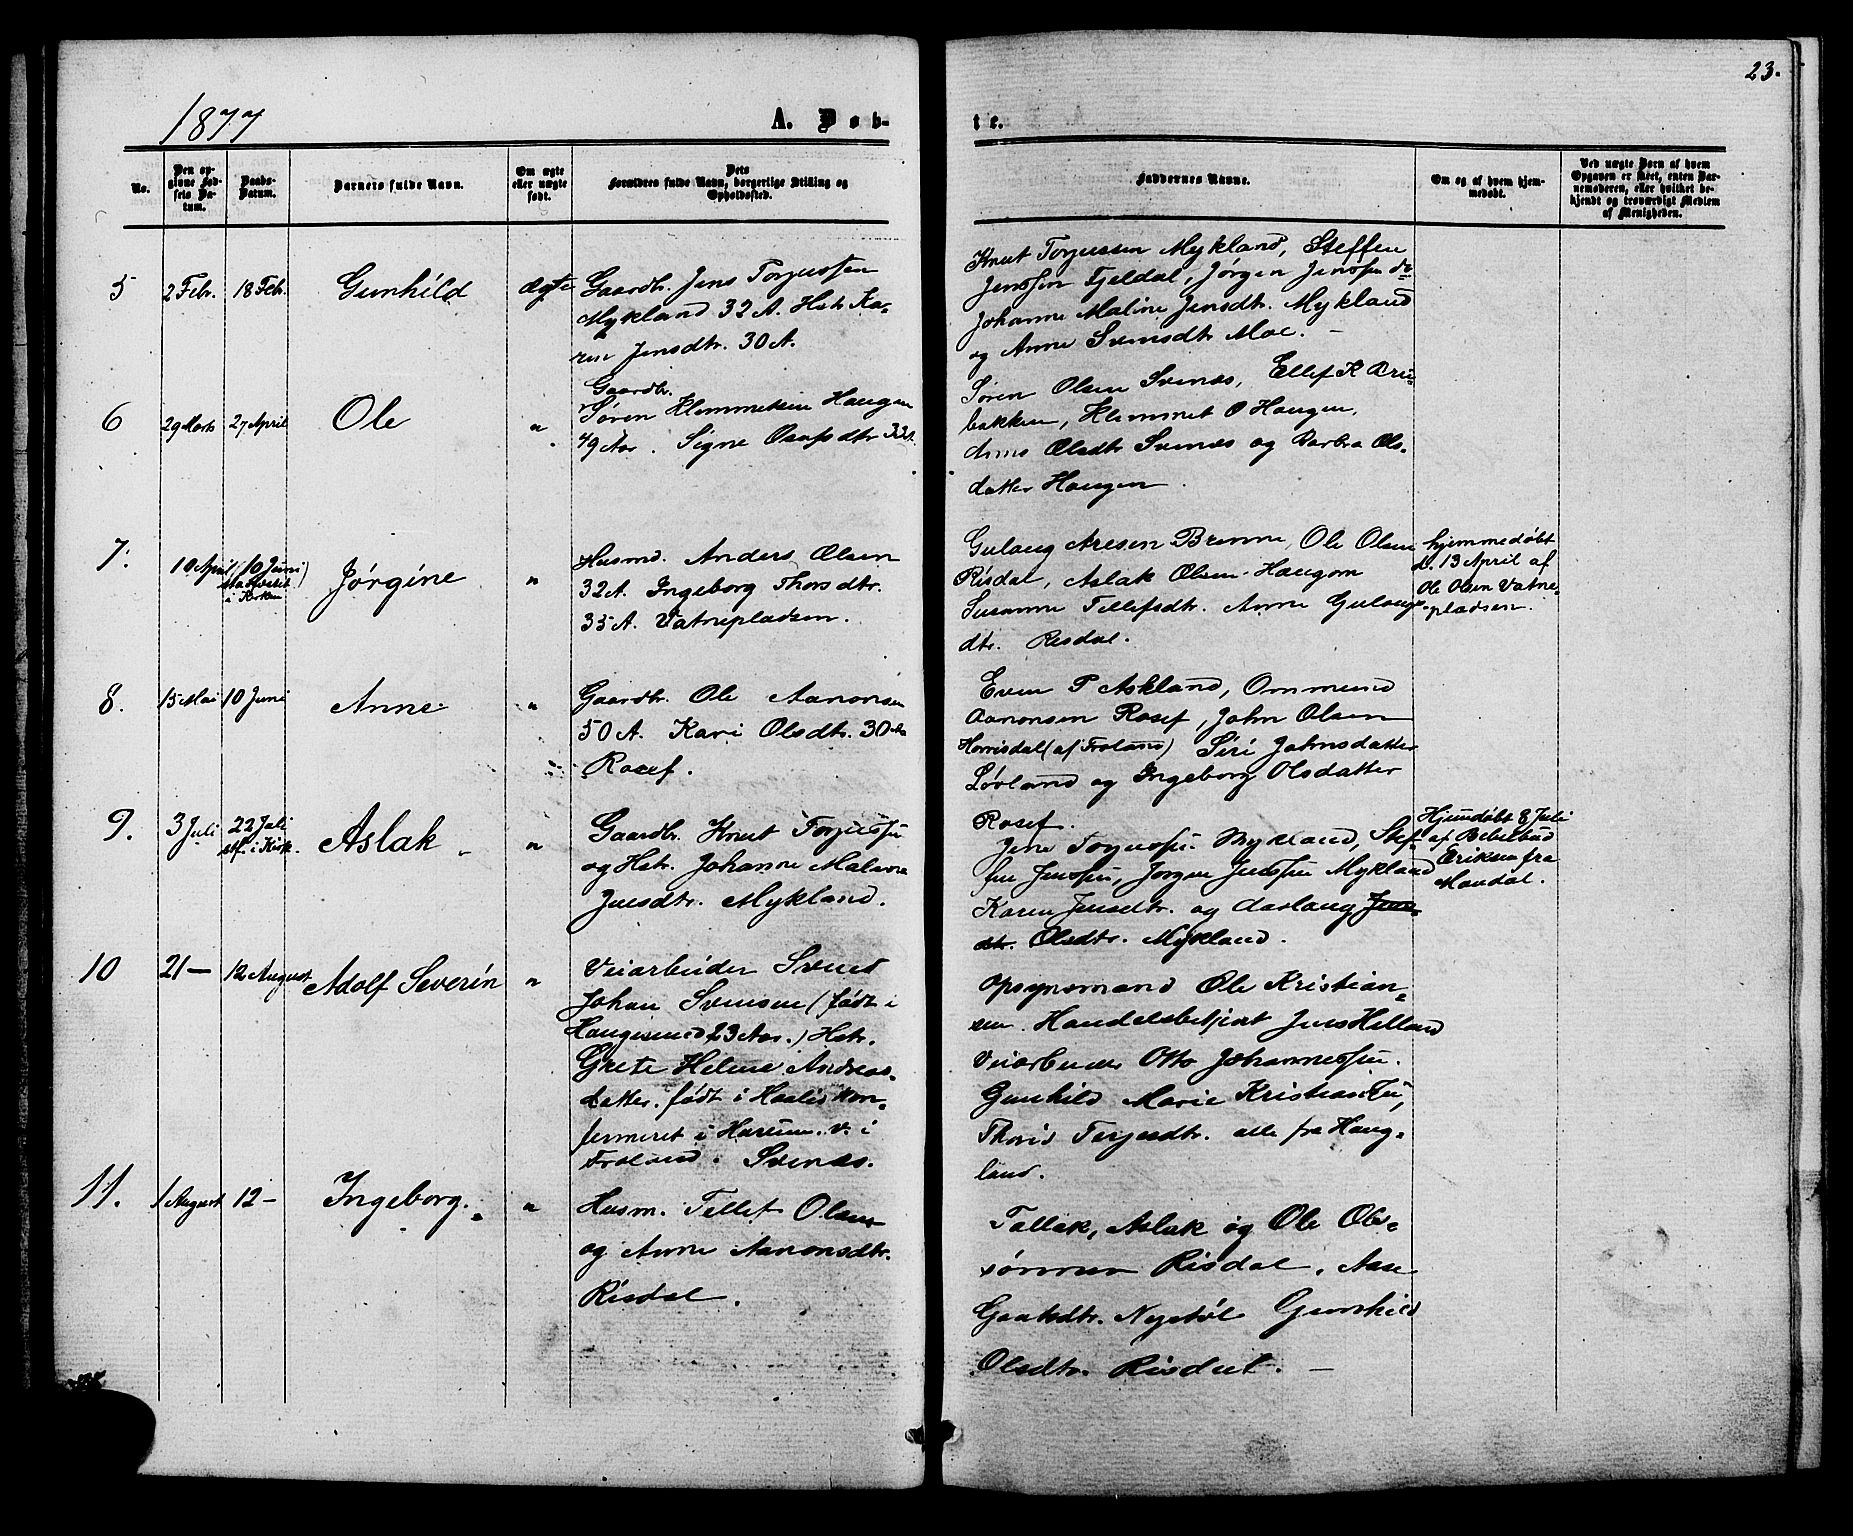 23.
1877
A. Døb-
te.
No.
Den op-
givne Fød-
sels Da-
tum.
Daabs-
Datum.
Barnets fulde Navn.
Om ægte
eller uægte
født.
Dets
Forældres fulde Navn, borgerlige Stilling og
Opholdssted.
Faddernes Navne.
Om og af hvem hjem-
medøbt.
Ved uægte Børn af hvem
Opgaven er skeet, enten Bar-
nemoderen, eller hvilket be-
kjendt og troværdigt Medlem
af Menigheden.
5
2 Febr.
18 Feb.
Gunhild
Ægte
Gaardbr. Jens Torjussen
Mykland 32 A. Hstr. Ka-
ren Jensdtr. 30 A.
Knut Torjussen Mykland, Steffen
Jenssen Fjeldal, Jørgen Jenssen do
Johanne Maline Jensdtr. Mykland
og Anne Svensdtr Moe. –
6
29 Marts
27 April
Ole
"
Gaardbr.
Søren Klemmetsen Haugen
49 Aar. Signe Osufsdtr 33 A.
Søren Olsen Svenås, Ellef K Bru-
bakken, Klemmet O Haugen,
Anne Olsdtr Svenæs og Barbra Ols-
datter Haugen.
7.
10 April
(10 Juni)
stadfæstet
i Kirken
Jørgine
"
Husmd. Anders Olsen
32 A. Ingeborg Thorsdtr.
35 A. Vatnepladsen.
Gulaug Aresen Brenne, Ole Olsen
Risdal, Aslak Olsen Haugom
Susanne Tellefsdtr. Anne Gulaugs-
dtr. Risdal.
hjemmedøbt
d. 13 April af
Ole Olsen Vatne-
pladsen.
8.
15 Mai
10 Juni
Anne
"
Gaardbr. Ole Aanonsen
50 A. Kari Olsdtr. 30 A
Rosef.
Even T Askland, Ommund
Aanonsen Rosef, John Olsen
Horrisdal (af Froland) Siri Johnsdatter
Løvland og Ingeborg Olsdatter
Rosef.
9.
3 Juli
22 Juli
stf. i Kirk.
Aslak
"
Gaardbr. Knut Torjussen
og Hstr. Johanne Maline
Jensdtr. Mykland.
Jens Torjussen Mykland, Stef-
fen Jenssen, Jørgen Jenssen Mykland
Karen Jensdtr. og Aaslaug Jens
dtr. Olsdtr. Mykland.
Hjemdøbt 8 Juli
af Bibelbud
Eriksen fra
Mandal.
10
21 —
12 August
Adolf Severin
"
Veiarbeider Svend
Johan Svensen (født i
Haugesund 23 Aar.) Hstr.
Grete Helene Andreas-
datter. født i kon-
fermeret i v. i
Froland. Svenæs.
Opsynsmand Ole Kristian-
sen. Handelsbetjent Jens Helland
Veiarbeider Otto Johannessen.
Gunhild Marie Kristiansen,
Thorid Terjesdtr. alle fra Haug-
land.
11.
1 August
12 —
Ingeborg.
"
Husm. Tellef Olsen
og Anne Aanonsdtr.
Risdal.
Tallak, Aslak og Ole Ols-
sønner Risdal, Aase
Nystøl Gunhild
Olsdtr. Risdal. —